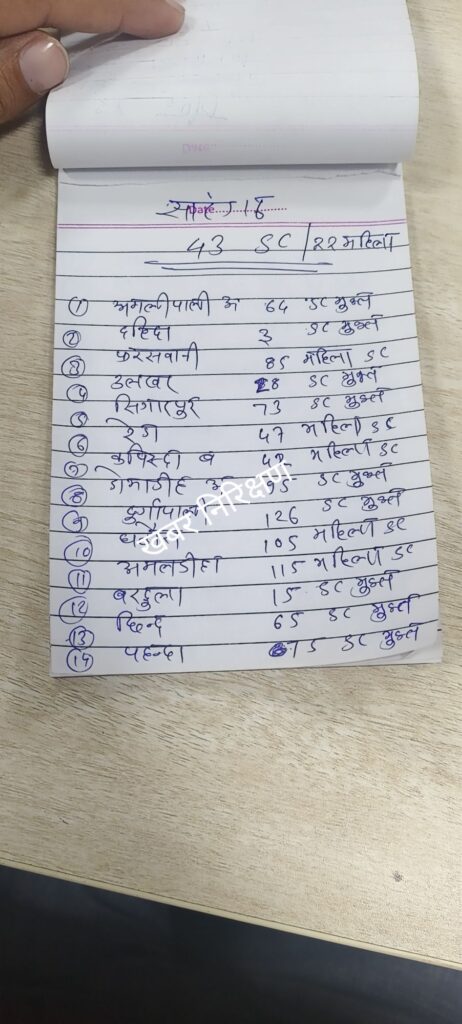 सारंगढ़
Date
43 SC / 22 महिला
① अमलीपाली अ 64 SC मुक्त
② दहिदा 3 SC मुक्त
③ फरसवानी 85 महिला SC
④ उलखर 28 SC मुक्त
⑤ सिंगारपुर 73 SC मुक्त
⑥ रेडा 47 महिला SC
⑦ कपिस्दा ब 42 महिला SC
⑧ डोमाडीह अ 95 SC मुक्त
⑨ दुर्गापाली 126 SC मुक्त
⑩ 105 महिला SC
⑪ अमलडीहा 115 महिला SC
⑫ बरदुला 15 SC मुक्त
⑬ छिन्द 65 SC मुक्त
⑭ पहन्दा 75 SC मुक्त
खबर निरिक्षण